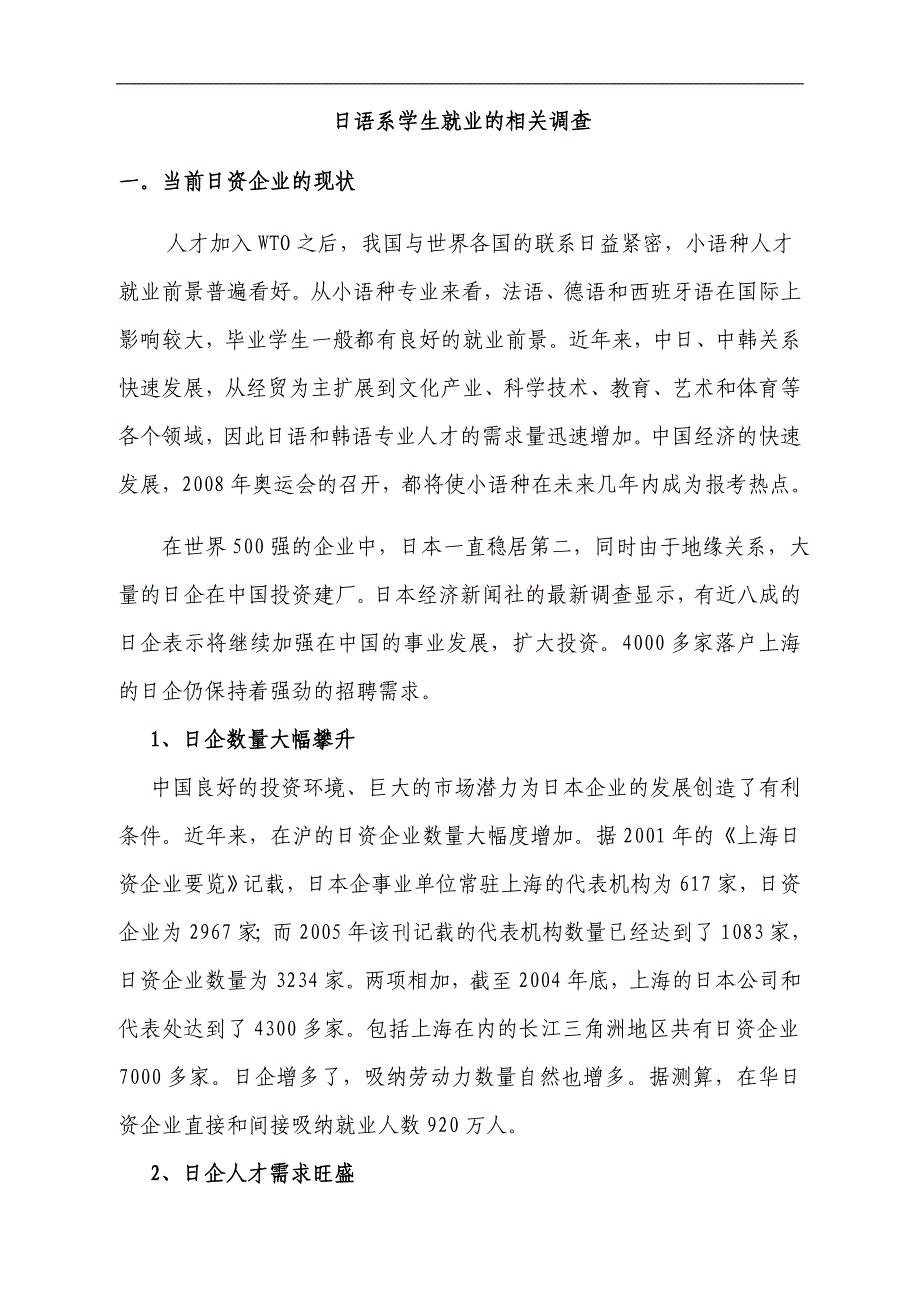 日语系学生就业的相关调查
一。当前日资企业的现状
人才加入 WTO 之后，我国与世界各国的联系日益紧密，小语种人才
就业前景普遍看好。从小语种专业来看，法语、德语和西班牙语在国际上
影响较大，毕业学生一般都有良好的就业前景。近年来，中日、中韩关系
快速发展，从经贸为主扩展到文化产业、科学技术、教育、艺术和体育等
各个领域，因此日语和韩语专业人才的需求量迅速增加。中国经济的快速
发展，2008 年奥运会的召开，都将使小语种在未来几年内成为报考热点。
在世界 500 强的企业中，日本一直稳居第二，同时由于地缘关系，大
量的日企在中国投资建厂。日本经济新闻社的最新调查显示，有近八成的
日企表示将继续加强在中国的事业发展，扩大投资。4000 多家落户上海
的日企仍保持着强劲的招聘需求。
1、日企数量大幅攀升
中国良好的投资环境、巨大的市场潜力为日本企业的发展创造了有利
条件。近年来，在沪的日资企业数量大幅度增加。据 2001 年的《上海日
资企业要览》记载，日本企事业单位常驻上海的代表机构为 617 家，日资
企业为 2967 家；而 2005 年该刊记载的代表机构数量已经达到了 1083 家，
日资企业数量为 3234 家。两项相加，截至 2004 年底，上海的日本公司和
代表处达到了 4300 多家。包括上海在内的长江三角洲地区共有日资企业
7000 多家。日企增多了，吸纳劳动力数量自然也增多。据测算，在华日
资企业直接和间接吸纳就业人数 920 万人。
2、日企人才需求旺盛